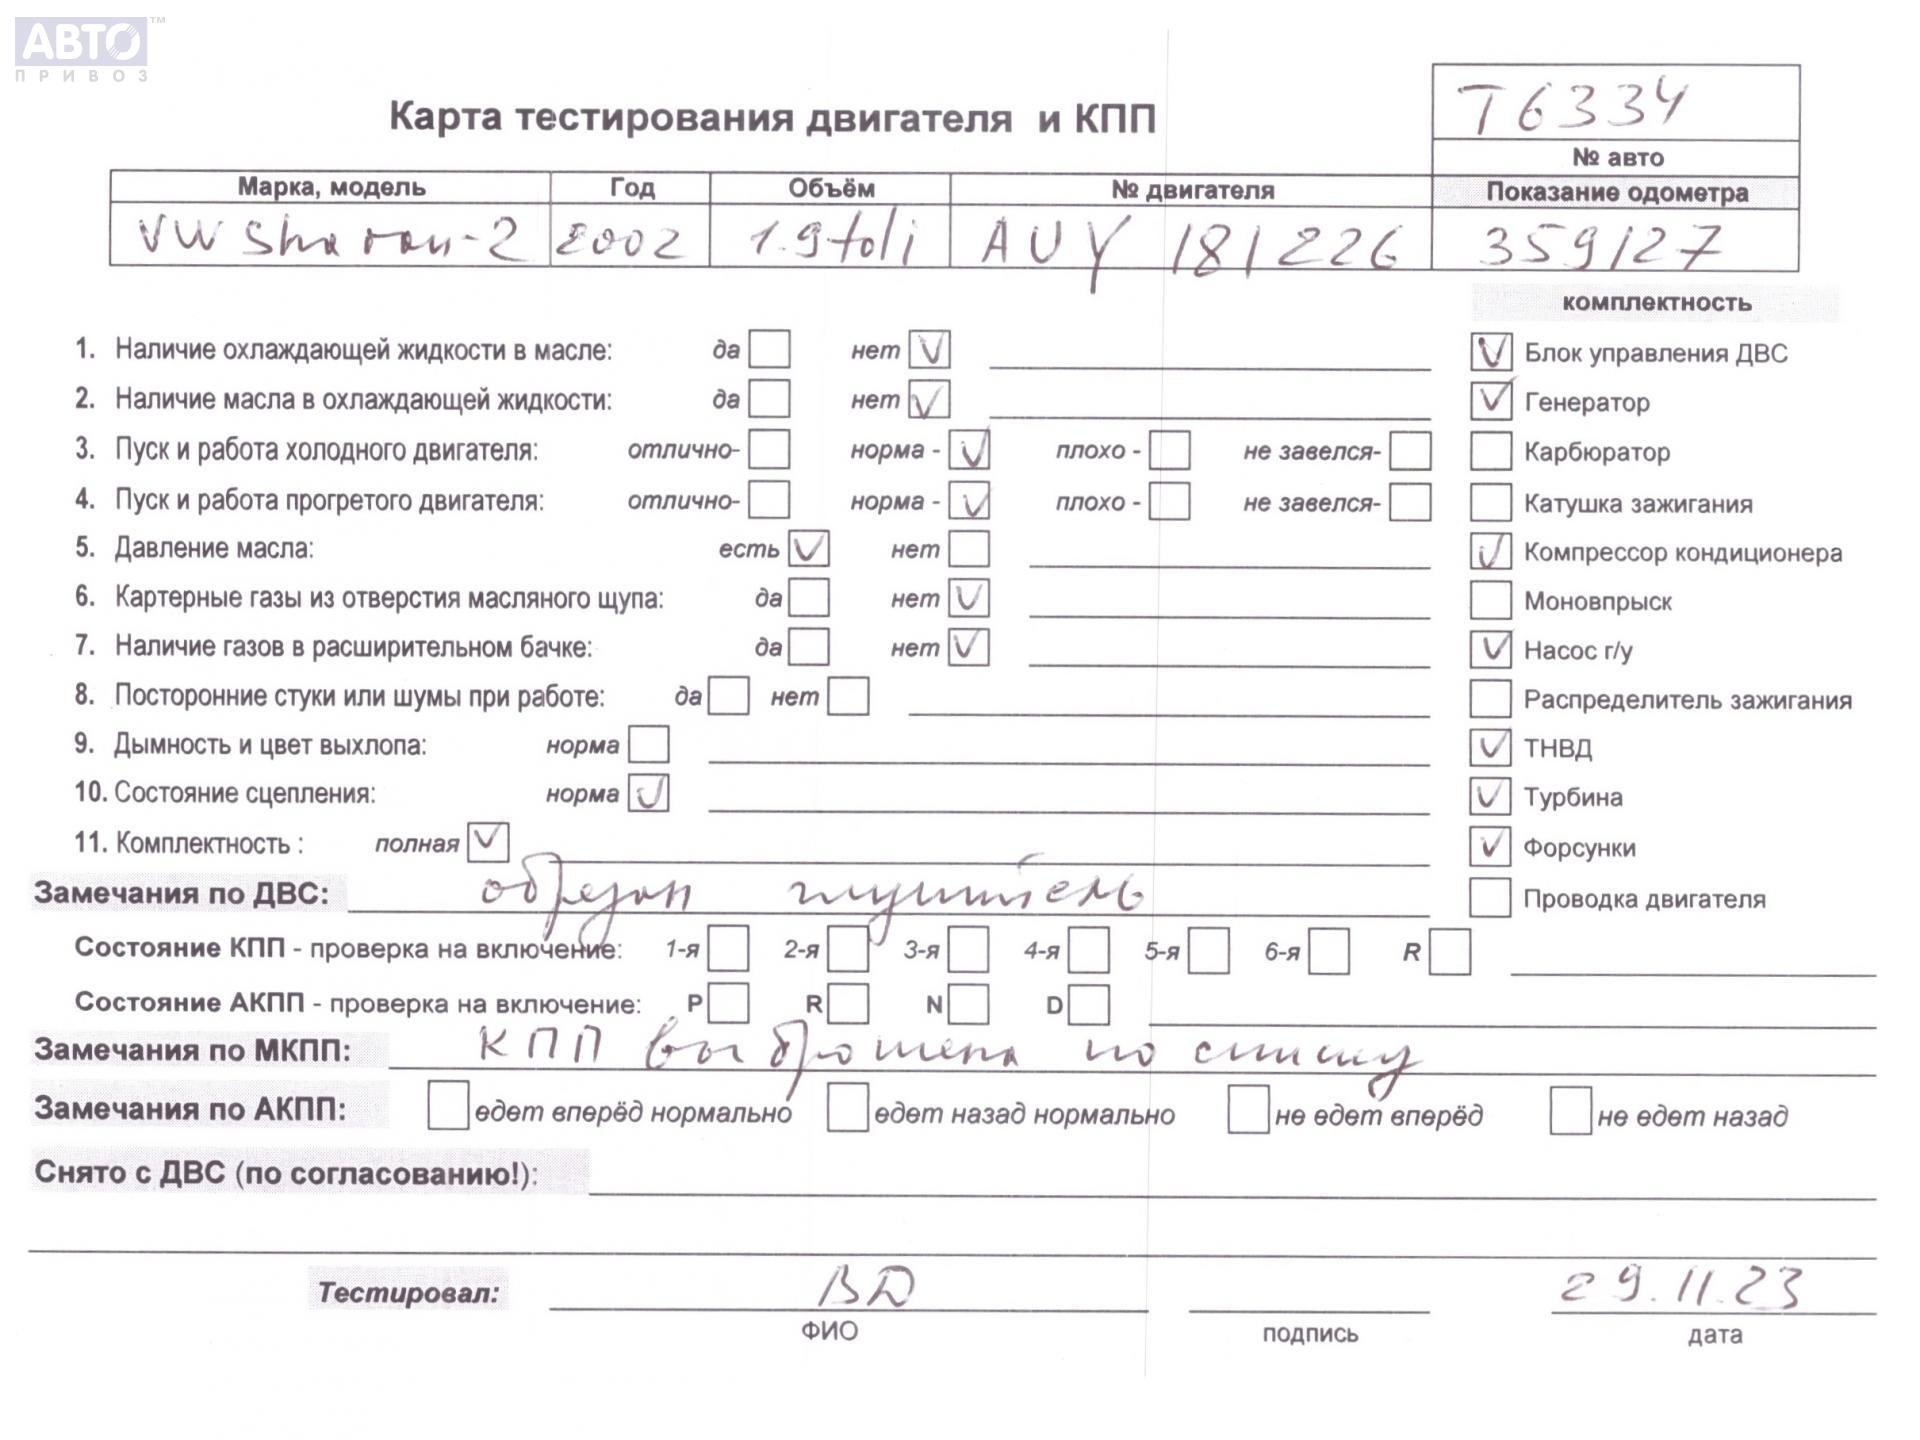 АВТО™
ПРИВОЗ
Карта тестирования двигателя и КПП
T6334
№ авто
Марка, модель Год Объём № двигателя Показание одометра
VW Sharan-2 2002 1.9 tdi AUY 181226 359127
комплектность
1. Наличие охлаждающей жидкости в масле: да нет ✓
✓ Блок управления ДВС
2. Наличие масла в охлаждающей жидкости: да нет ✓
✓ Генератор
3. Пуск и работа холодного двигателя: отлично- норма - ✓ плохо - не завелся-
Карбюратор
4. Пуск и работа прогретого двигателя: отлично- норма - ✓ плохо - не завелся-
Катушка зажигания
5. Давление масла: есть ✓ нет
✓ Компрессор кондиционера
6. Картерные газы из отверстия масляного щупа: да нет ✓
Моновпрыск
7. Наличие газов в расширительном бачке: да нет ✓
✓ Насос г/у
8. Посторонние стуки или шумы при работе: да нет
Распределитель зажигания
9. Дымность и цвет выхлопа: норма
✓ ТНВД
10. Состояние сцепления: норма ✓
✓ Турбина
11. Комплектность : полная ✓
✓ Форсунки
Замечания по ДВС: обрезан глушитель
Проводка двигателя
Состояние КПП - проверка на включение: 1-я 2-я 3-я 4-я 5-я 6-я R
Состояние АКПП - проверка на включение: P R N D
Замечания по МКПП: КПП выброшена по списку
Замечания по АКПП: едет вперёд нормально едет назад нормально не едет вперёд не едет назад
Снято с ДВС (по согласованию!):
Тестировал: ВД 29.11.23
ФИО подпись дата